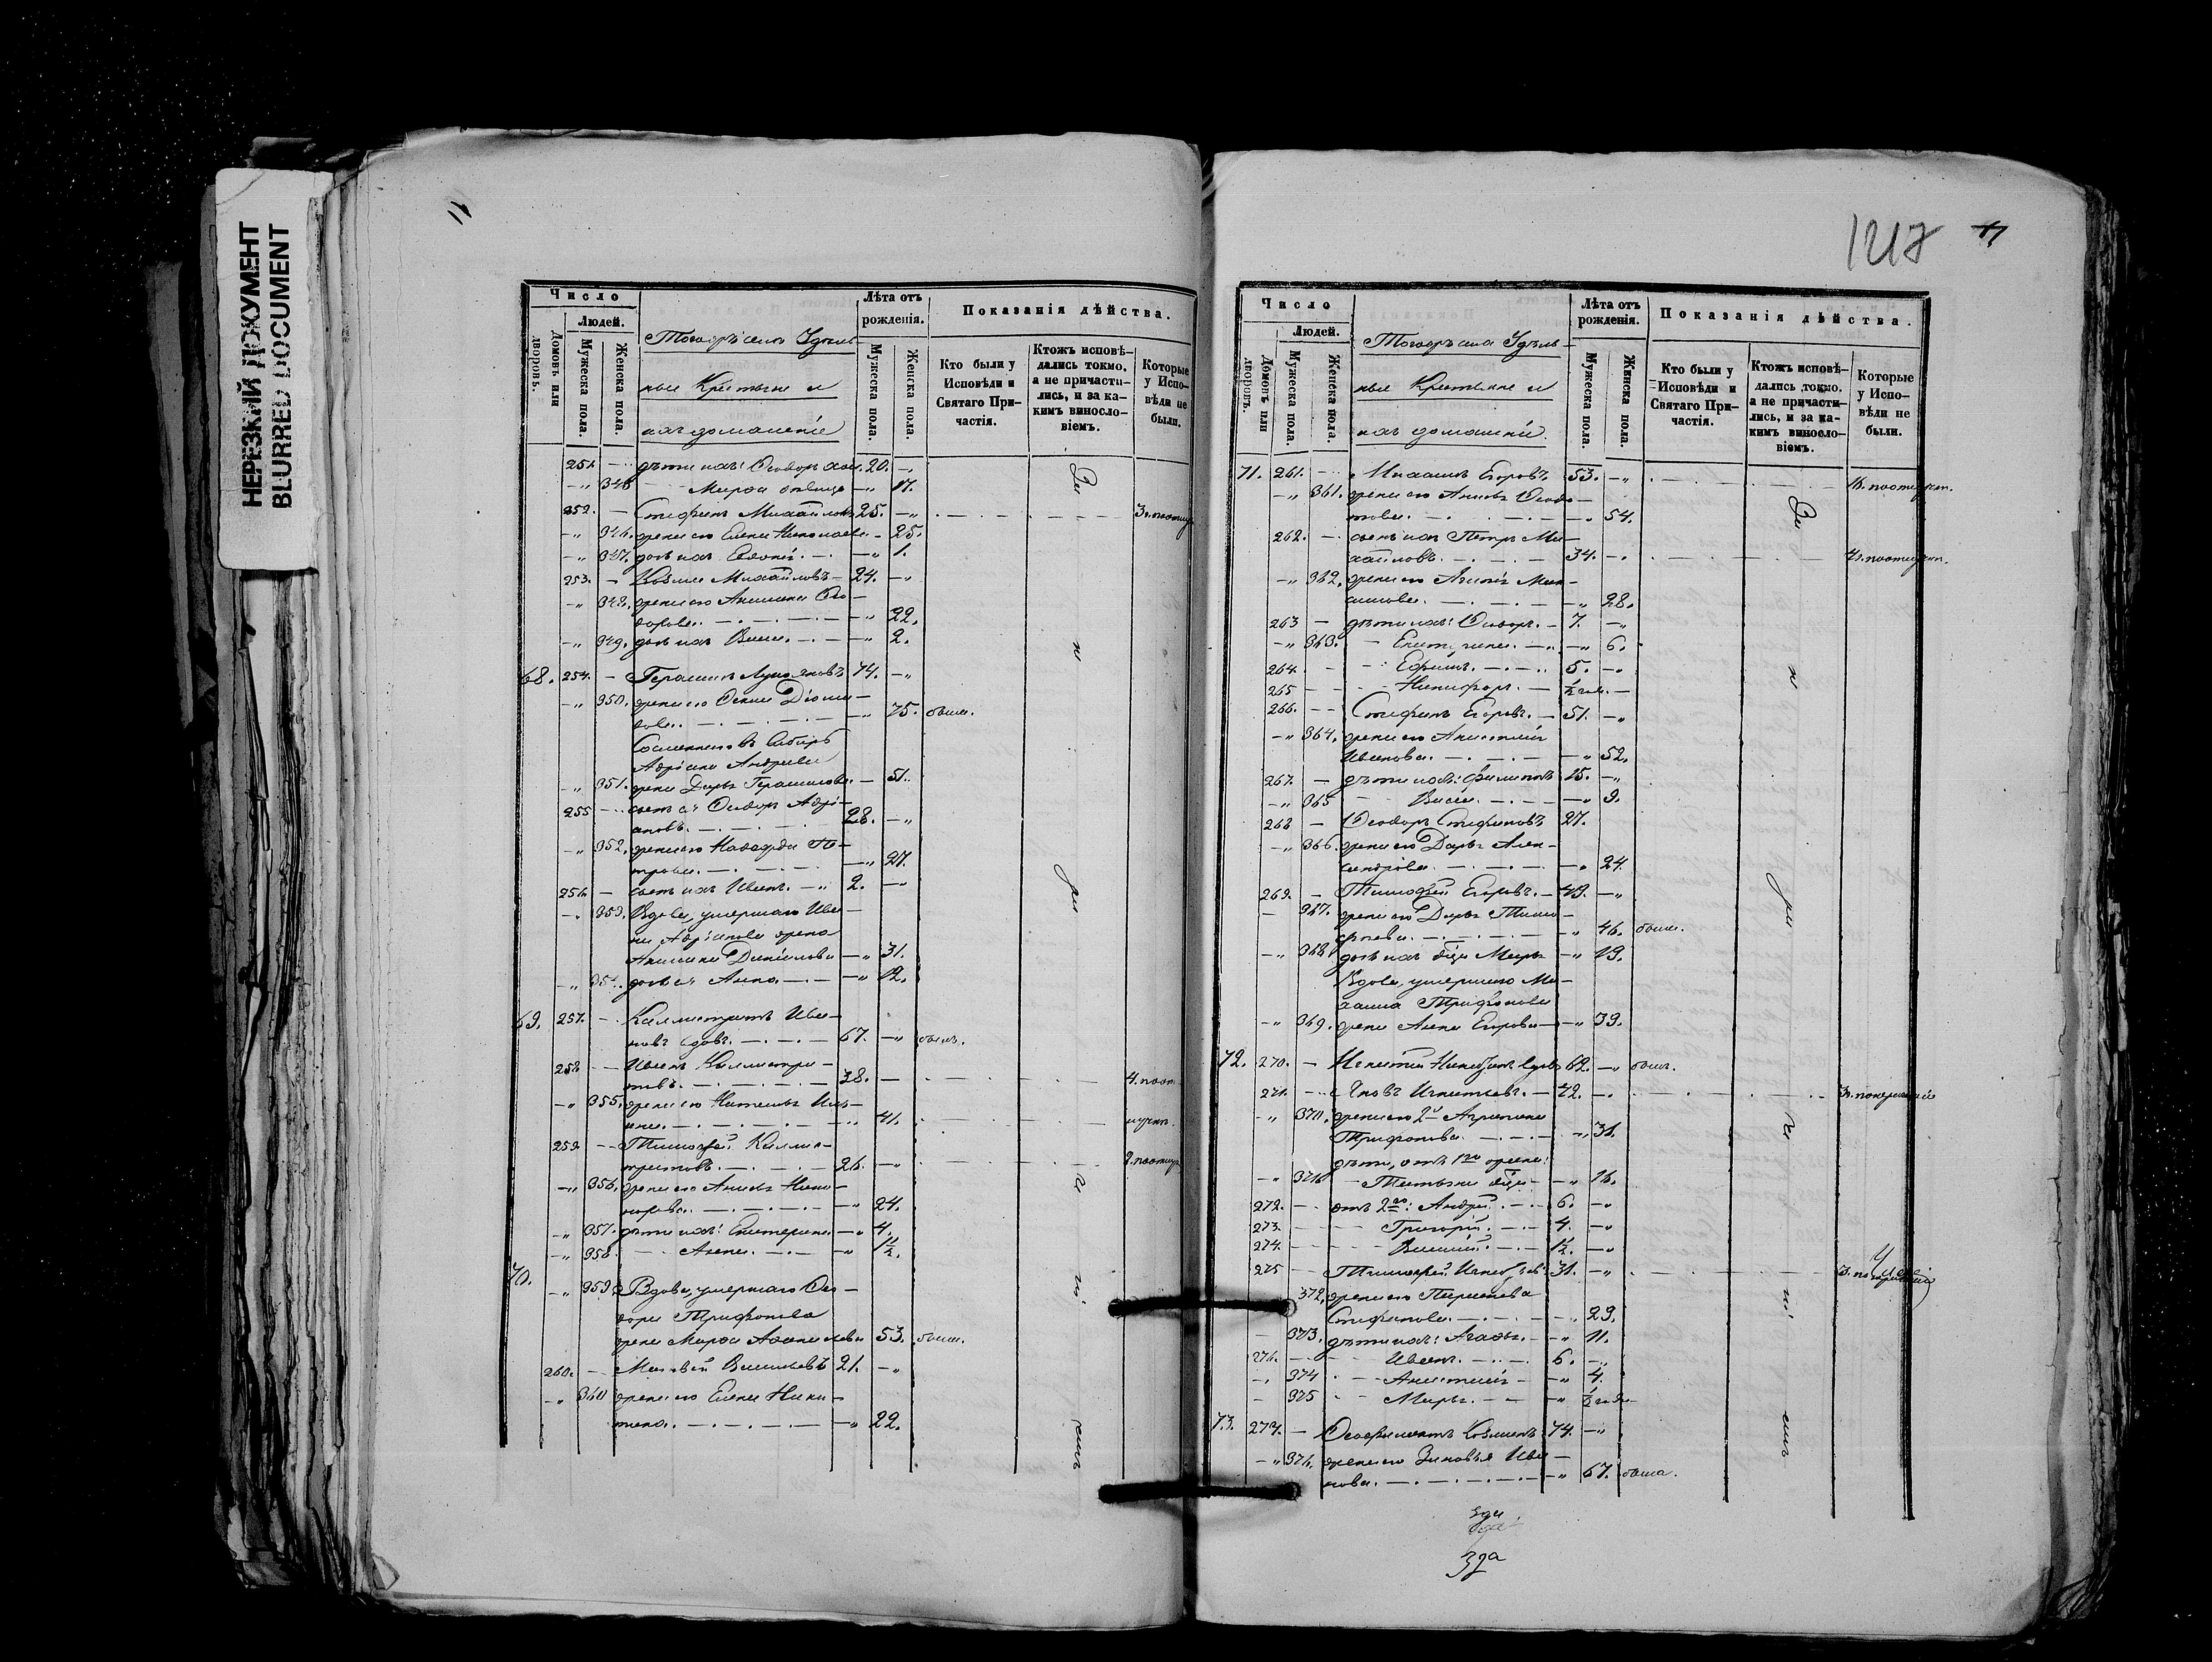 НЕРЕЗКИЙ ДОКУМЕНТ
BLURRED DOCUMENT
11
Число
Людей.
Домовъ или дворовъ.
Мужеска пола.
Женска пола.
Тогожъ села Удѣль-
ные Крестьяне и
ихъ домашніе
Лѣта отъ рожденія.
Мужеска пола.
Женска пола.
Показанія дѣйства.
Кто были у Исповѣди и Святаго При-частія.
Ктожъ исповѣ-дались токмо, а не причасти-лись, и за ка-кимъ винословіемъ.
Которые у Испо-вѣди не были.
251. — дѣти ихъ: Ѳеодоръ хол. 20. —„
—„ Марѳа дѣвица —„ 17.
252. — Стефанъ Михайловъ 25. —„ 3 г. по опущ
—„ 346. жена его Елена Николаева — 25.
—„ 347. дочь ихъ Евдокія —„ 1.
253. — Козьма Михайловъ — 24. —„
—„ 348. жена его Акилина Ѳео-
дорова. —„ 22.
—„ 349. дочь ихъ Васса. —„ 2.
68. 254. — Герасимъ Лукьяновъ 74. —„
—„ 350. жена его Ѳекла Діоми-
дова. —„ 75. была.
Сосланнаго въ Сибирь
Адріана Андреева
—„ 351. жена Дарья Герасимова. — 51.
255 — сынъ ея Ѳеодоръ Адрі-
ановъ. 28. —„
—„ 352. жена его Надежда Пе-
трова. —„ 27.
256. — сынъ ихъ Иванъ. —„ 2. —„
—„ 353. Вдова, умершаго Ива-
на Адріанова жена
Акилина Даніилова —„ 31.
—„ 354. дочь ея Анна. —„ 12.
69. 257. — Каллистратъ Ива-
новъ вдовъ. 67. —„ былъ.
258. — Иванъ Каллистра-
товъ. 38. — 4. по оп
—„ 355. жена его Наталья Иль-
ина. —„ 41. ущен.
259. — Тимоѳей Каллис-
тратовъ. 26. —„ 2. по опущ
—„ 356. жена его Анисья Ника-
норова. —„ 24.
—„ 357. дѣти ихъ: Екатерина —„ 4.
—„ 358. Анна. —„ 1½.
70.
—„ 359. Вдова, умершаго Ѳео-
дора Трифонова
жена Марѳа Аѳанасьева 53. была.
260. — Матвей Васильевъ 21. —„
—„ 360 жена его Елена Ники-
тина. —„ 22.
1217 11
Число
Людей.
Домовъ или дворовъ.
Мужеска пола.
Женска пола.
Тогожъ села Удѣль-
ные Крестьяне и
ихъ домашніе.
Лѣта отъ рожденія.
Мужеска пола.
Женска пола.
Показанія дѣйства.
Кто были у Исповѣди и Святаго При-частія.
Ктожъ исповѣ-дались токмо, а не причасти-лись, и за ка-кимъ винословіемъ.
Которые у Испо-вѣди не были.
71. 261. — Михаилъ Егоровъ 53. —„ по опущен.
—„ 361. жена его Анисья Ѳеодо-
това. —„ 54.
262. — сынъ ихъ Петръ Ми-
хайловъ. 34. —„ по опущен.
—„ 362. жена его Агапія Мак-
симова. —„ 28.
263 — дѣти ихъ: Ѳеодоръ. — 7. —„
—„ 363. Екатерина. —„ 6.
264. Ефимъ. 5. —„
265 Никифоръ. ½ год. —
266. Стефанъ Егоровъ. — 51. —„
—„ 364. жена его Анастасія
Иванова. —„ 52.
267. — дѣти ихъ: Филиппъ 15. —„
—„ 365 Васса. —„ 9.
268 — Ѳеодоръ Стефановъ 27.
—„ 366. жена его Дарья Алек-
сандрова. —„ 24.
269. — Тимоѳей Егоровъ. — 49. —„
— 367. жена его Дарья Тимо-
ѳеева. —„ 46. была.
—„ 368 дочь ихъ дѣв. Марья —„ 19.
Вдова, умершаго Ми-
хаила Трифонова
—„ 369. жена Анна Егорова —„ 39.
72. 270. — Игнатій вдовъ 62. —„ былъ.
271. — Іаковъ Игнатьевъ. — 42. —„ 3 г. по нерадѣнію
—„ 370. жена его 2я Агрипина
Трифонова. —„ 31.
дѣти, отъ 1й жены:
—„ 371. Татьяна дѣв. —„ 16.
272. — отъ 2й: Андрей. 6. —„
273. Григорій. 4. —„
274. Василій. 1½. —„
275 — Тимоѳей Игнатьевъ 31. —„ 3. по нерадѣнію
372. жена его Параскева
Стефанова. —„ 29.
— 373. дѣти ихъ: Агаѳья. —„ 11.
276. Иванъ. 6. —„
—„ 374 Анастасія —„ 4.
— 375 Марья. —„ ½ года
73. 277. — Ѳеофилактъ Козьминъ 74. —„
—„ 376. жена его Зиновья Ива-
нова. —„ 67. была.